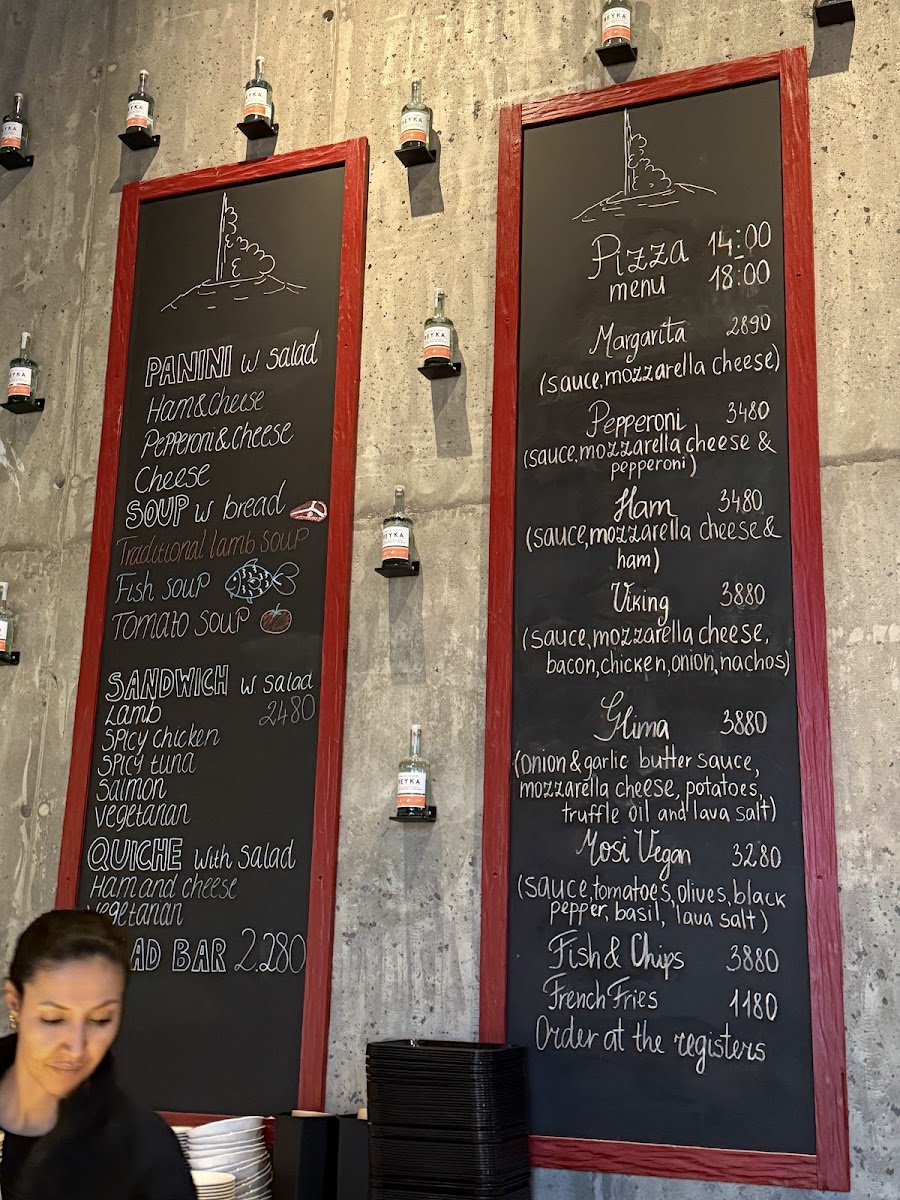 PANINI w salad
Ham & cheese
Pepperoni & cheese
Cheese
SOUP w bread
Traditional lamb soup
Fish soup
Tomato soup
SANDWICH w salad
Lamb 2480
Spicy chicken
Spicy tuna
Salmon
Vegetarian
QUICHE with salad
Ham and cheese
Vegetarian
AD BAR 2.280
Pizza 14:00
menu 18:00
Margarita 2890
(sauce, mozzarella cheese)
Pepperoni 3480
(sauce, mozzarella cheese &
pepperoni)
Ham 3480
(sauce, mozzarella cheese &
ham)
Viking 3880
(sauce, mozzarella cheese,
bacon, chicken, onion, nachos)
Glima 3880
(onion & garlic butter sauce,
mozzarella cheese, potatoes,
truffle oil and lava salt)
Mosi Vegan 3280
(sauce, tomatoes, olives, black
pepper, basil, lava salt)
Fish & Chips 3880
French Fries 1180
Order at the registers
REYKA